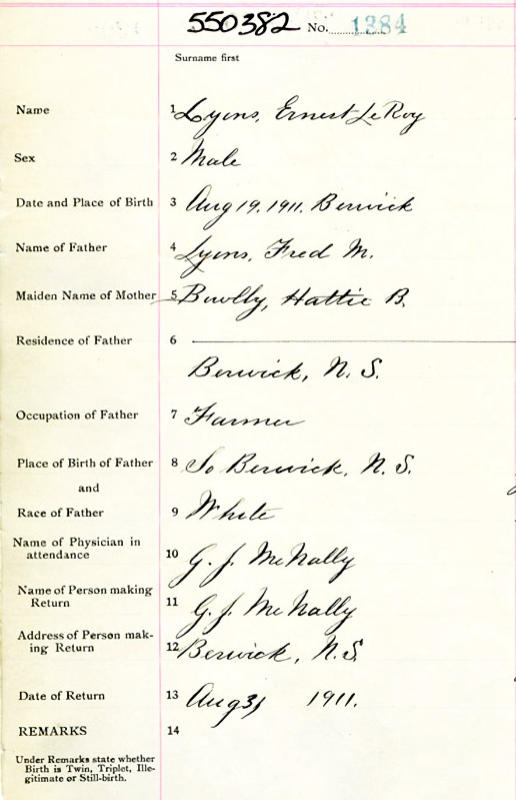 550382 No. 1384
Surname first
Name 1 Lyons, Ernest LeRoy
Sex 2 Male
Date and Place of Birth 3 Aug 19. 1911. Berwick
Name of Father 4 Lyons, Fred M.
Maiden Name of Mother 5 Bowlby, Hattie B.
Residence of Father 6
Berwick, N. S.
Occupation of Father 7 Farmer
Place of Birth of Father 8 So Berwick, N. S.
and
Race of Father 9 White
Name of Physician in
attendance 10 G. J. McNally
Name of Person making
Return 11 G. J. McNally
Address of Person mak-
ing Return 12 Berwick, N.S.
Date of Return 13 Aug 31 1911.
REMARKS 14
Under Remarks state whether
Birth is Twin, Triplet, Ille-
gitimate or Still-birth.